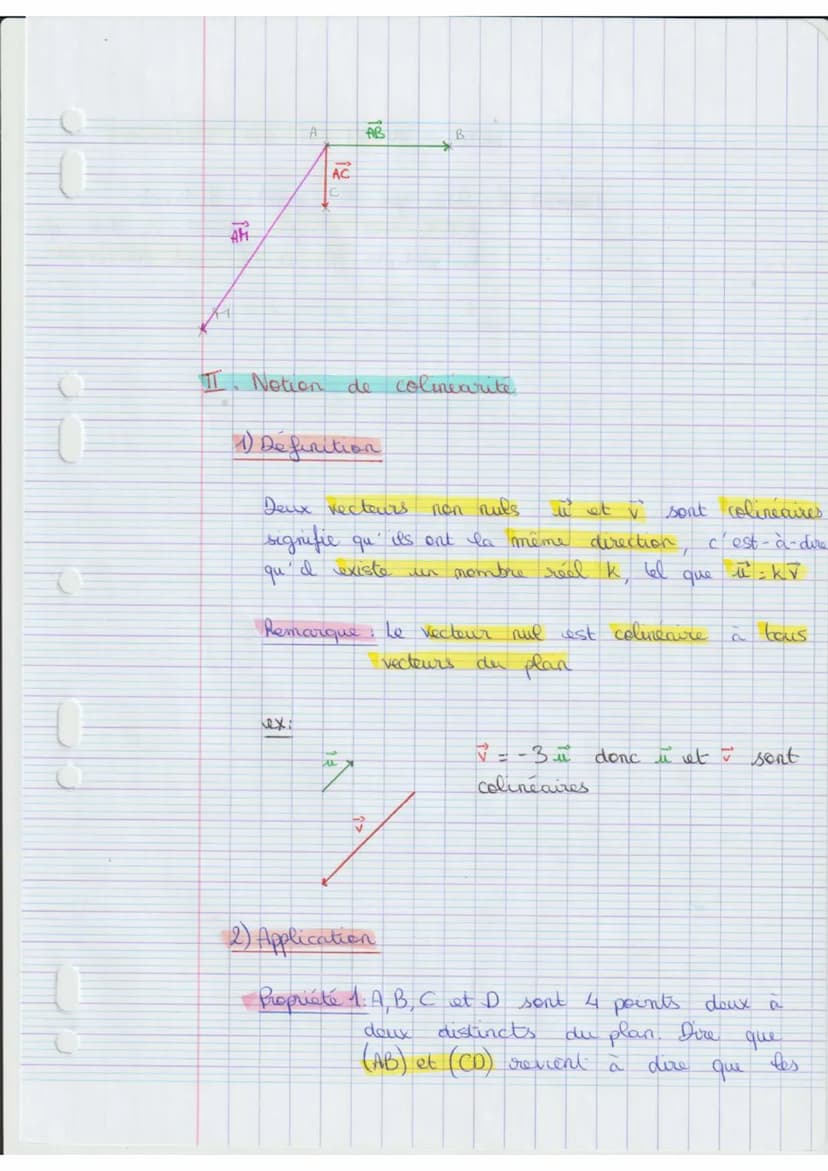 A
AB
B
AC
C
AM
M
II. Notion de colinéarité
1) Définition
Deux vecteurs non nuls u et v sont colinéaires
signifie qu'ils ont la même direction, c'est-à-dire
qu'il existe un nombre réel k, tel que u = kv
Remarque : Le vecteur nul est colinéaire à tous
vecteurs du plan
ex:
u
v = -3 u donc u et v sont
colinéaires
v
2) Application
Propriété 1: A, B, C et D sont 4 points deux à
deux distincts du plan. Dire que
(AB) et (CD) revient à dire que les